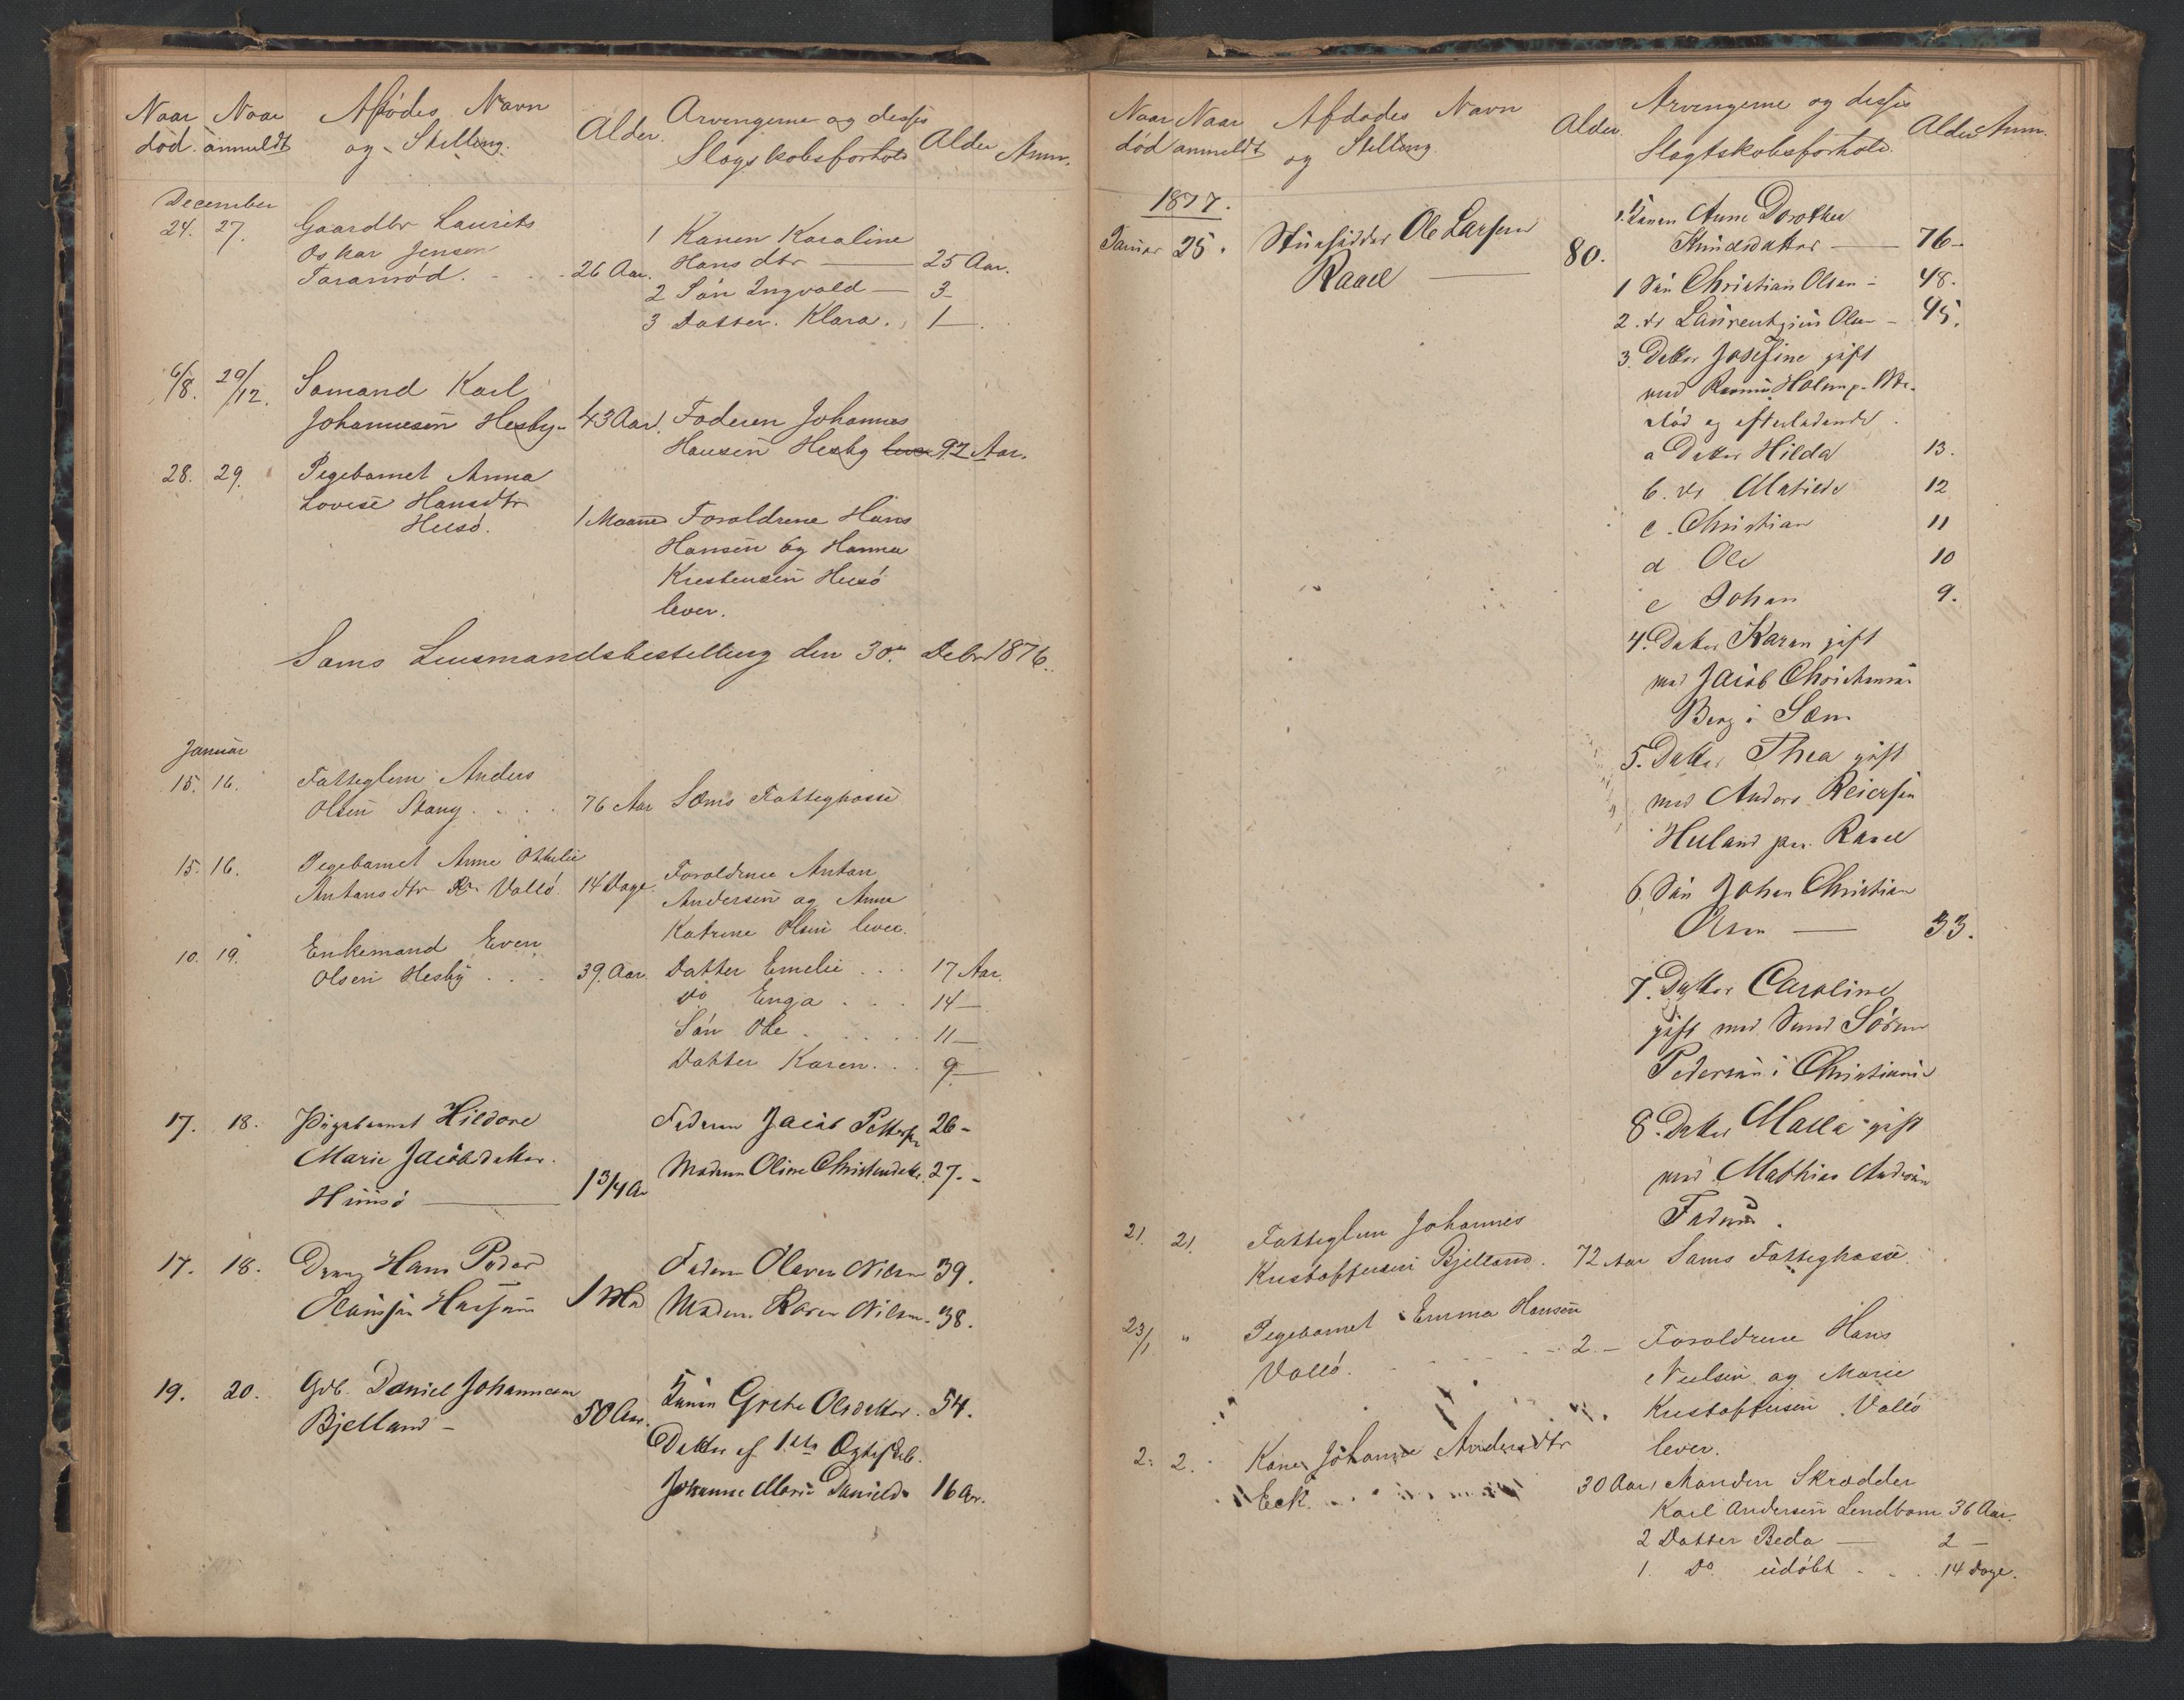 Naar død. Naar anmeldt Afdødes Navn og Stilling. Alder. Arvengerne og disses Slægtskabsforhold Alder Anm.
December
24. 27. Gaardbr Laurits 1 Konen Karoline
Oskar Jensen Hansdtr — 25 Aar.
Taranrød. - - - 26 Aar. 2 Søn Ingvald — 3 —
3 Datter. Klara. 1 —.
6/8. 29/12. Sømand Karl
Johannesen Hesby - 43 Aar. Faderen Johannes
Hansen Hesby 92 Aar.
28. 29. Pigebarnet Anna
Lovise Hansdtr
Husø. 1 Maaned Forældrene Hans
Hansen og Hanna
Kristensen Husø
lever.
Sæms Lensmandsbestilling den 30te Debr 1876.
Januar
15. 16. Fatteglem Anders
Olsen Stang. . . . 76 Aar Sæms Fattegkasse
15. 16. Pigebarnet Anne Othelie
Antonsdtr Vallø. 14 Dage. Forældrene Anton
Andersen og Anne
Katrine Olsen lever.
10. 19. Enkemand Even
Olsen Hesby . . . 39 Aar. Datter Emelie . . . 17 Aar.
do Enga . . . 14 —
Søn Ole . . . . . 11 —
Datter Karen. . . 9 —
17. 18. Pigebarnet Hildore Faderen Jacob Petters. 26 -
Marie Jacobsdatter. Modren Oline Christensdatter. 27. -
Husø — 1 3/4 Aar
17. 18. Dreng Hans Peder Faderen Olaves Nilsen 39.
1 Md Modren Karen Nilsen. 38.
19. 20. Gdb. Daniel Johannesen Konen Grethe Olsdatter. 54.
Bjelland - 50 Aar. Datter af 1ste Ægteskab.
Johanne Marie Danielsd. 16 Aar.
Naar død Naar anmeldt Afdødes Navn og Stilling. Alder. Arvengerne og disses Slægtskabsforhold. Alder Anm.
1877.
Januar 25. Ole Larsen 1. Konen Anne Dorothea
Rael — 80. Knudsdatter — 76 —
1 Søn Christian Olsen - 48.
2. do Laurentzius Olsen - 45.
3. Datter Josefine gift
med Rasmus Holm p.
død og efterladende.
a Datter Hilda 13.
b. do Matilde 12
c. Christian 11
d Ole 10
e Johan 9.
4. Datter Karen gift
med Jacob Christensen
Berg i Sæm
5. Datter Thea gift
med Anders Reiersen
Huland pr. Rael
6. Søn Johan Christian
Olsen — 33.
7. Datter Caroline
gift med Sømd Søren
Pedersen i Christiania
8. Datter Malla gift
med Mathias Andersen
21. 21. Fatteglem Johannes
Kristoffersen Bjelland. 72 Aar Sæms Fattegkasse.
23/1. " Pigebarnet Emma Hansen
Vallø. - - - 2 - Forældrene Hans
Nielsen og Marie
Kristoffersen Vallø
lever.
2. 2. Kone Johanne Andersdtr
Eck. . . . 30 Aar. Manden Skrædder
Karl Andersen Lendbom 36 Aar.
2 Datter Beda — 2 —
1. Do. udøbt - . . 14 Dage.